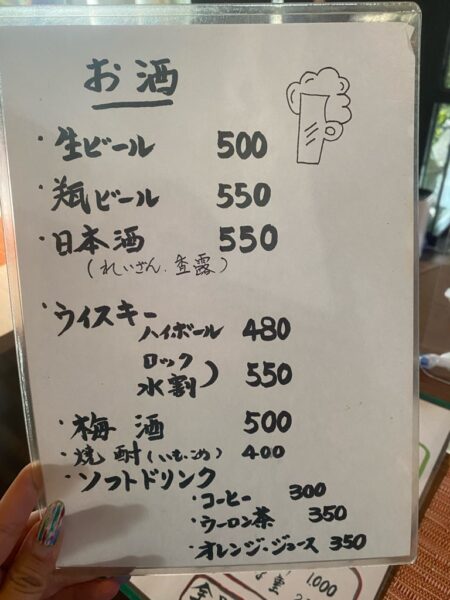 お酒
・生ビール 500
・瓶ビール 550
・日本酒 550
(れいざん.香露)
・ウイスキー
ハイボール 480
ロック
水割) 550
・梅酒 500
・焼酎(いも・こめ) 400
・ソフトドリンク
・コーヒー 300
・ウーロン茶 350
・オレンジ・ジュース 350
1,000